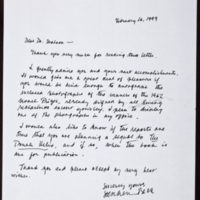 February 20, 1999
Dear Dr. Watson —
Thank you very much for reading this letter.
I greatly admire you and your accomplishments.
It would give me a great deal of pleasure if
you would be kind enough to autograph the
enclosed photograph of the winners of the 1962
Nobel Prizes, already signed by all living
except you. I plan to display
one of the photographs in my office.
I would also like to know if the reports are
true that you are planning a sequel to The
Double Helix, and if so, when the book is
due for publication.
Thank you and please accept my very best
wishes.
Sincerely yours,